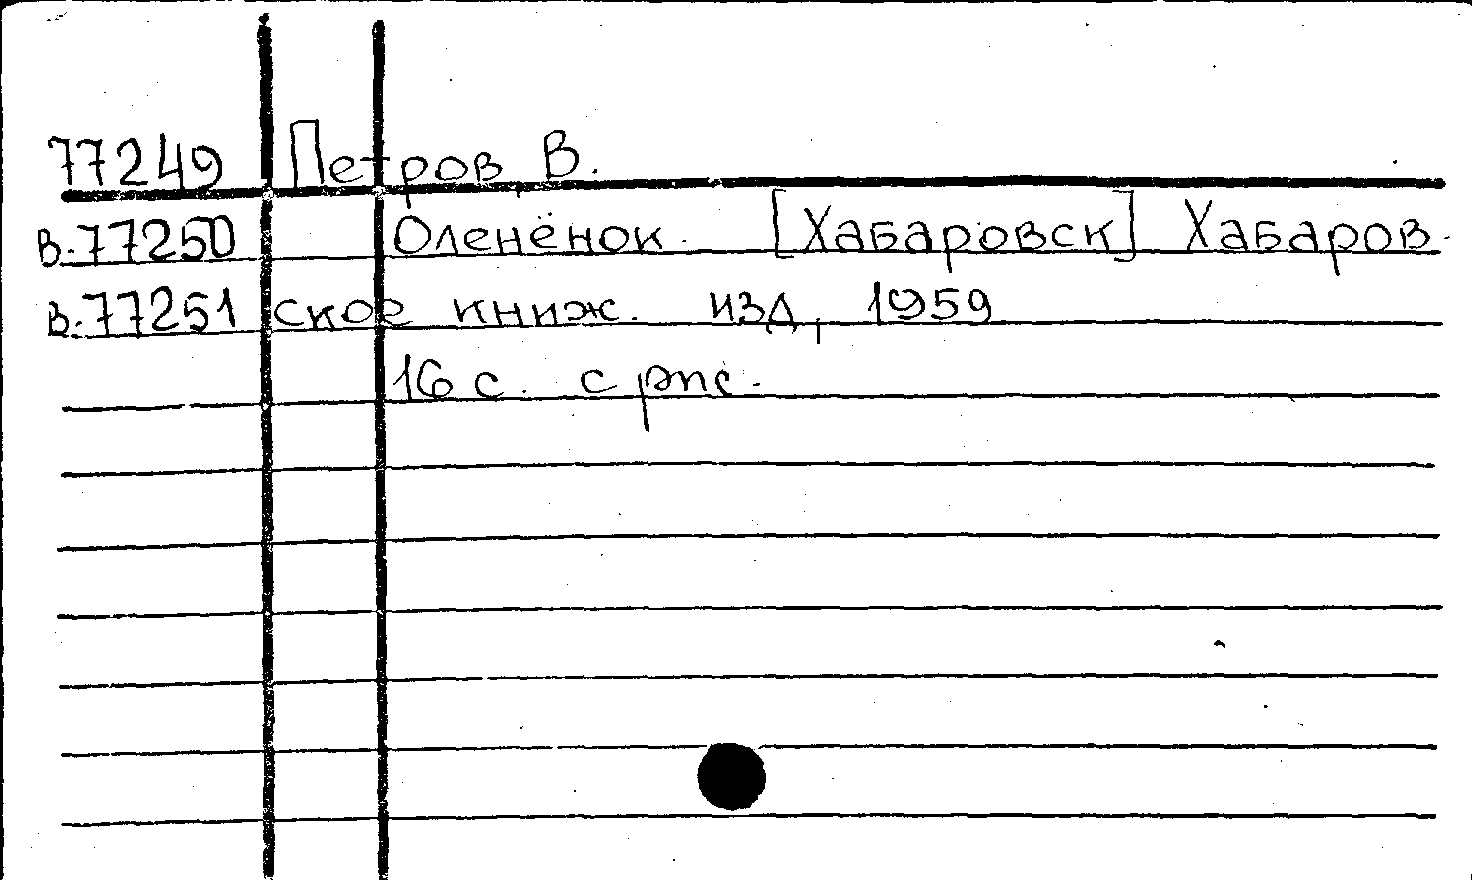 77249 Петров, В.
В.77250 Оленёнок. [Хабаровск] Хабаров-
В.77251 ское книж. изд, 1959
16 с. с рис.